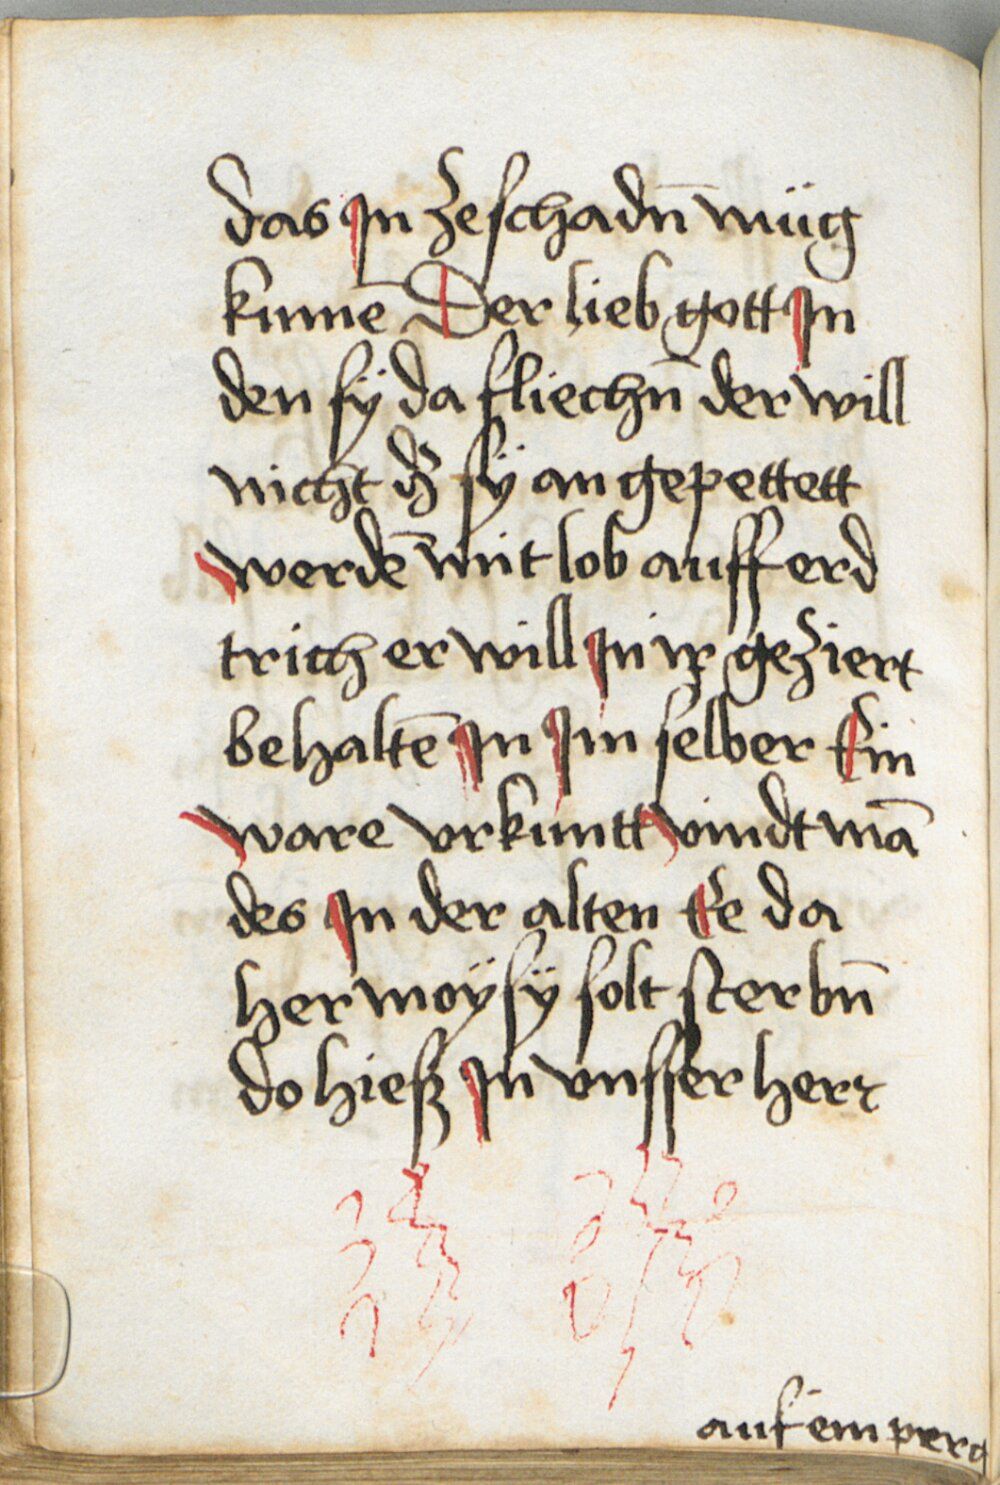 das Jn zeschadn̄ müg
kunnē Der lieb gott Jn
den sÿ da fliechn̄ der will
nicht dz sÿ an gepettett
werdē mit lob auff erd
trich er will Jn ir geziert
behaltē Jn Jm selber Ein
ware vrkuntt vindt mā
des Jn der alten Ee da
her moÿsÿ solt sterbn̄
do hieß Jn vnsser herr
auf ein perg